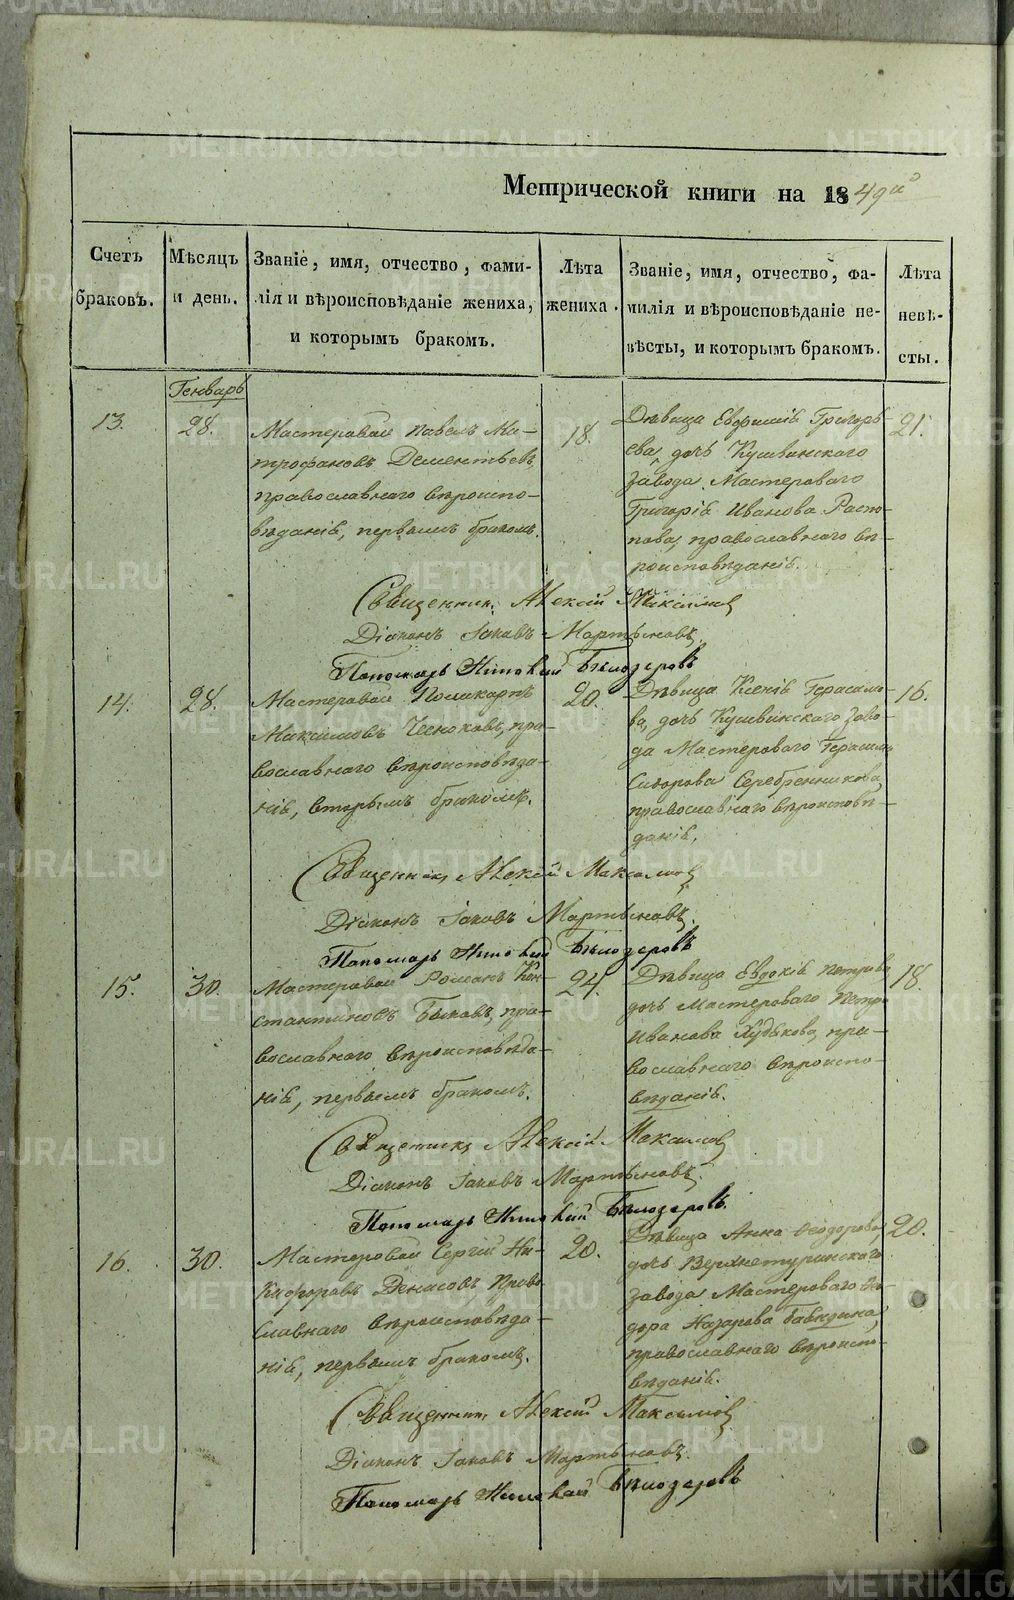 Метрической книги на 1849й
Счетъ браковъ.
Мѣсяцъ и день.
Званіе, имя, отчество, фами-
лія и вѣроисповѣданіе жениха,
и которымъ бракомъ.
Лѣта жениха.
Званіе, имя, отчество, фа-
милія и вѣроисповѣданіе не-
вѣсты, и которымъ бракомъ.
Лѣта
невѣ-
сты.
Генварь
13.
28.
Мастеровой Павелъ Ми-
трофановъ Дементьевъ,
православнаго вѣроиспо-
вѣданія, первымъ бракомъ.
18.
Дѣвица Евфимія Григорь-
ева, дочь Кушвинскаго
завода Мастероваго
Григорія Иванова Распо-
пова, православнаго вѣ-
роисповѣданія.
21.
Священникъ Алексій Максимов
Діаконъ Іаковъ Мартыновъ.
Пономарь Бѣлозеровъ
14.
28.
Мастеровой Поликарпъ
Максимовъ Чесноковъ, пра-
вославнаго вѣроисповѣда-
нія, вторымъ бракомъ.
20.
Дѣвица Ксенія Герасимо-
ва, дочь Кушвинскаго заво-
да Мастероваго Герасима
Сидорова Серебренникова
православнаго вѣроисповѣ-
данія.
16.
Священникъ Алексій Максимов
Діаконъ Іаковъ Мартыновъ.
Пономарь Бѣлозеровъ
15.
30.
Мастеровой Романъ Кон-
стантиновъ Быковъ, пра-
вославнаго вѣроисповѣда-
нія, первымъ бракомъ.
24.
Дѣвица Евдокія Петрова
дочь Мастероваго Петра
Иванова Худякова, пра-
вославнаго вѣроиспо-
вѣданія.
18.
Священникъ Алексій Максимов
Діаконъ Іаковъ Мартыновъ.
Пономарь Бѣлозеровъ.
16.
30.
Мастеровой Сергій Ни-
кифоровъ Денисовъ Право-
славнаго вѣроисповѣда-
нія, первымъ бракомъ.
20.
Дѣвица Анна Ѳеодорова,
дочь Верхнетуринскаго
завода Мастероваго Ѳео-
дора Назарова
православнаго вѣроиспо-
вѣданія.
20.
Священникъ Алексій Максимов
Діаконъ Іаковъ Мартыновъ.
Пономарь Бѣлозеровъ
METRIKI.GASO-URAL.RU